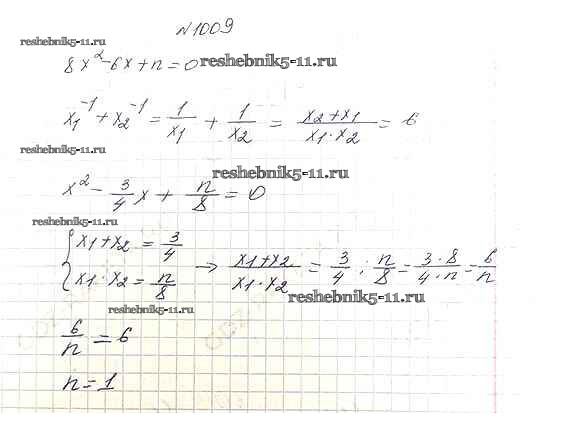 №1009
reshebnik5-11.ru
8x² - 6x + n = 0 reshebnik5-11.ru
x₁⁻¹ + x₂⁻¹ = 1/x₁ + 1/x₂ = (x₂ + x₁)/(x₁ · x₂) = 6
reshebnik5-11.ru
reshebnik5-11.ru
x² - 3/4 x + n/8 = 0
reshebnik5-11.ru
{ x₁ + x₂ = 3/4
x₁ · x₂ = n/8 → (x₁ + x₂)/(x₁ · x₂) = 3/4 : n/8 = (3 · 8)/(4 · n) = 6/n
reshebnik5-11.ru
reshebnik5-11.ru
6/n = 6
n = 1